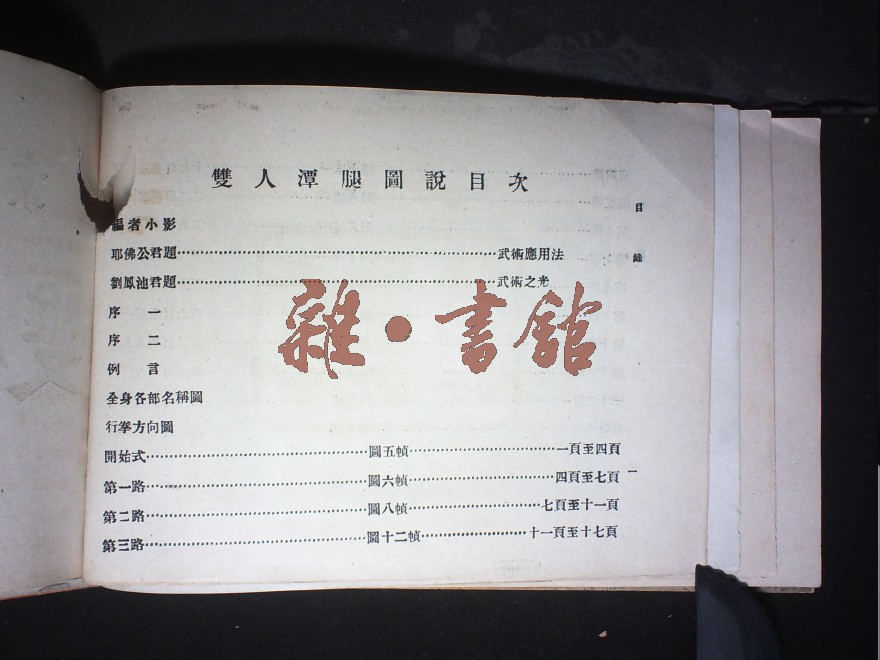 雙人潭腿圖說目次
編者小影
耶佛公君題……武術應用法
劉鳳池君題……武術之光
序 一
序 二
例 言
全身各部名稱圖
行拳方向圖
開始式……圖五幀……一頁至四頁
第一路……圖六幀……四頁至七頁
第二路……圖八幀……七頁至十一頁
第三路……圖十二幀……十一頁至十七頁
目 錄
一
雜·書館